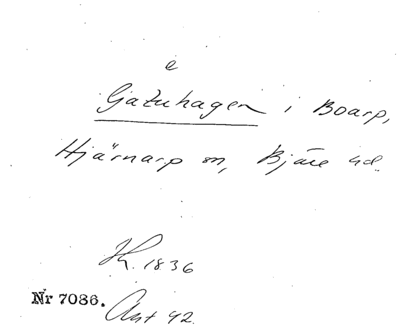 e
Gjatuhagen i Boarp,
Hjärnarp sn, Bjäre hd.
K. 1836
Nr 7086. Akt 42